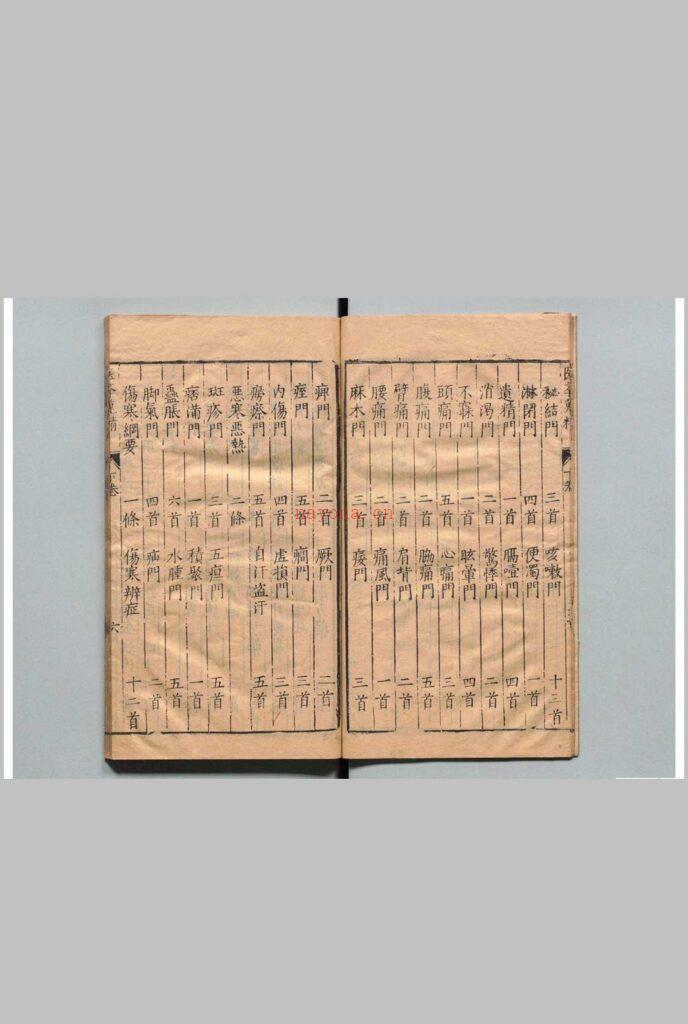 秘結門 三首 咳嗽門 十三首
淋閉門 四首 便濁門 一首
遺精門 一首 膈噎門 四首
消渴門 二首 驚悸門 二首
不寐門 一首 眩暈門 四首
頭痛門 五首 心痛門 三首
腹痛門 二首 脇痛門 五首
臂痛門 二首 肩背門 二首
腰痛門 二首 痛風門 一首
麻木門 三首 痿門 三首
痹門 二首 厥門 二首
痙門 五首 癇門 三首
內傷門 四首 虛損門 三首
癆瘵門 五首 自汗盜汗 五首
惡寒惡熱 二條
斑疹門 三首 五疸門 五首
痞滿門 一首 積聚門 一首
蠱脹門 六首 水腫門 五首
脚氣門 四首 疝門 二首
傷寒綱要 一條 傷寒辨症 十二首
下卷
六